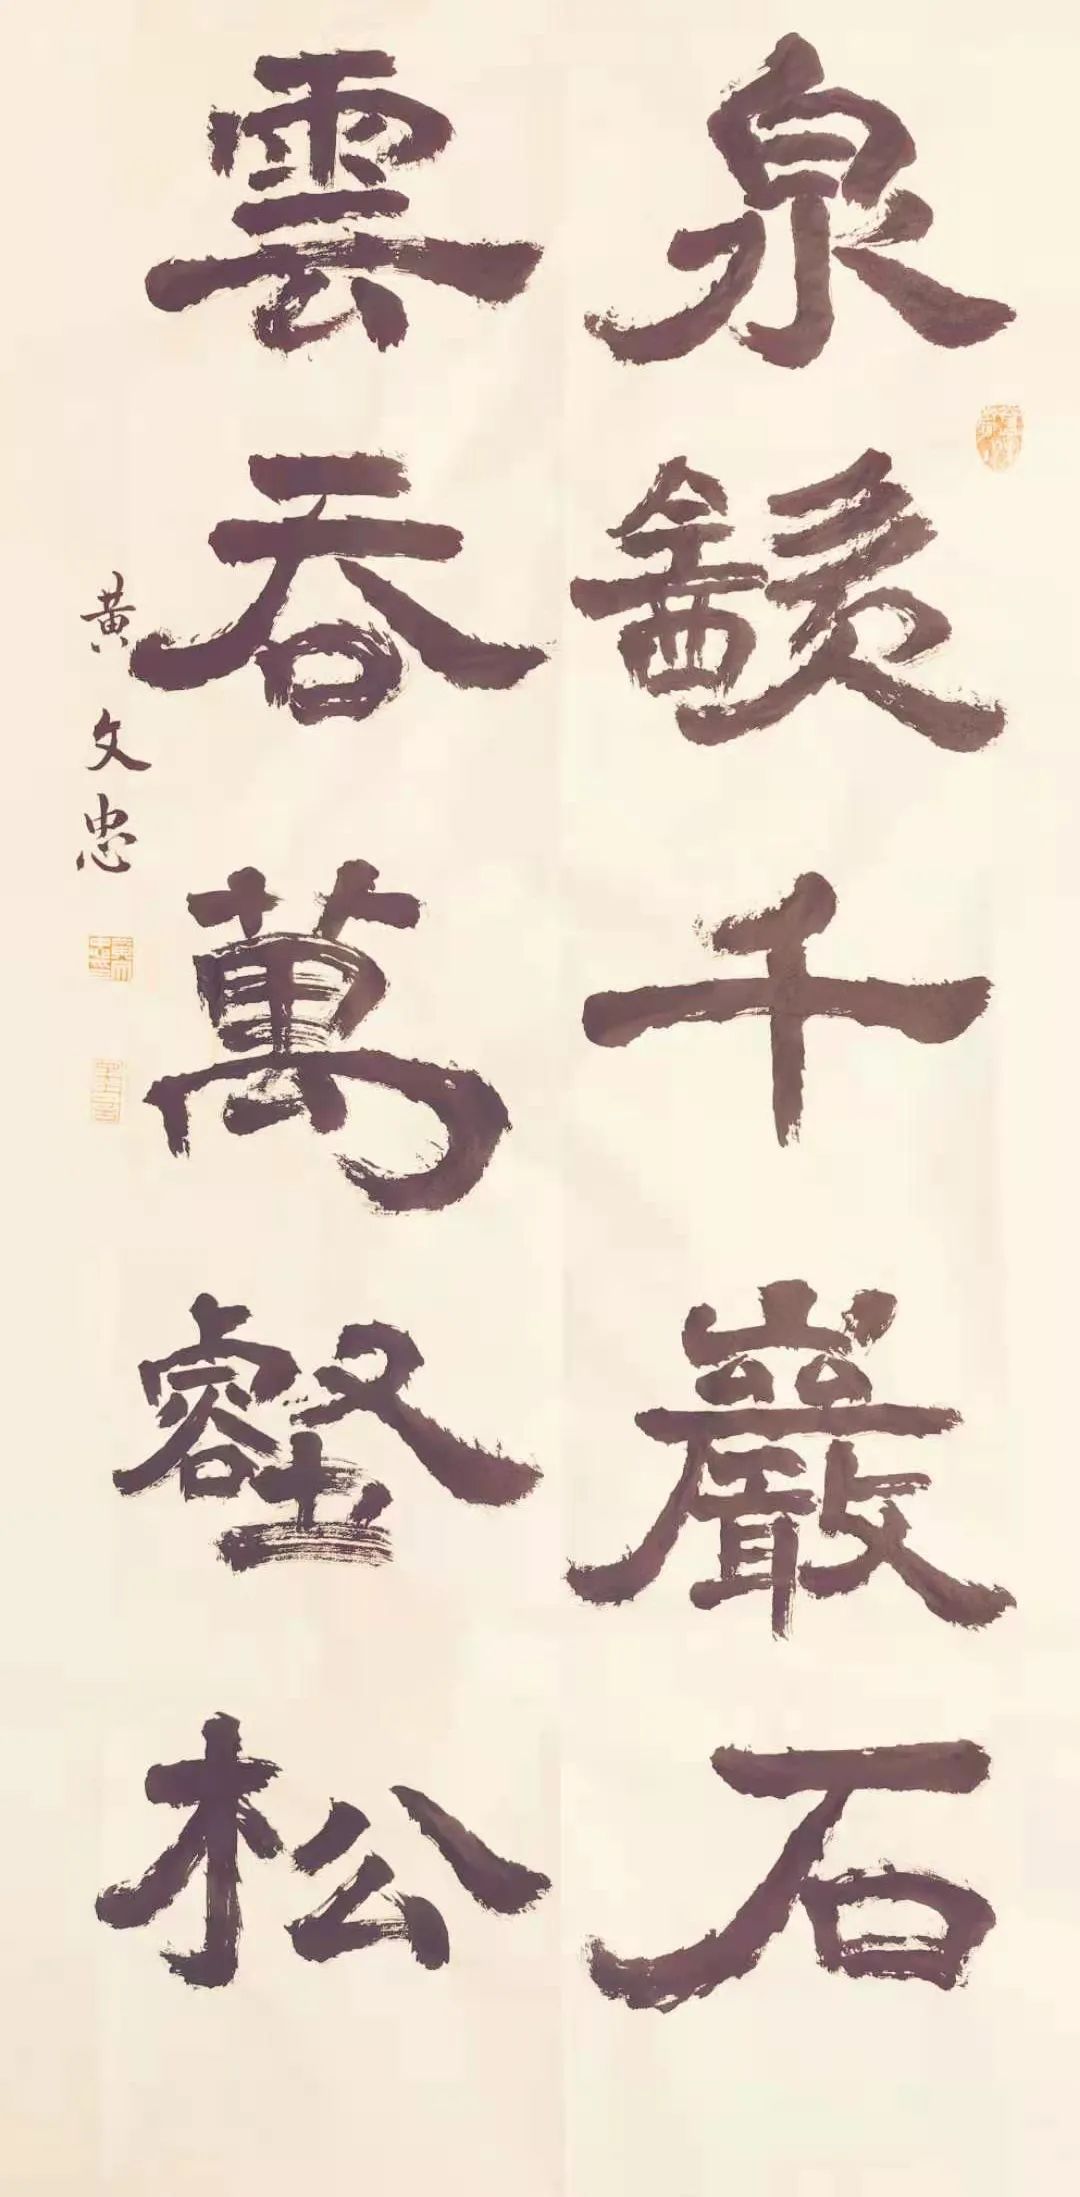 泉千巖石
雲吞萬壑松
黄文忠